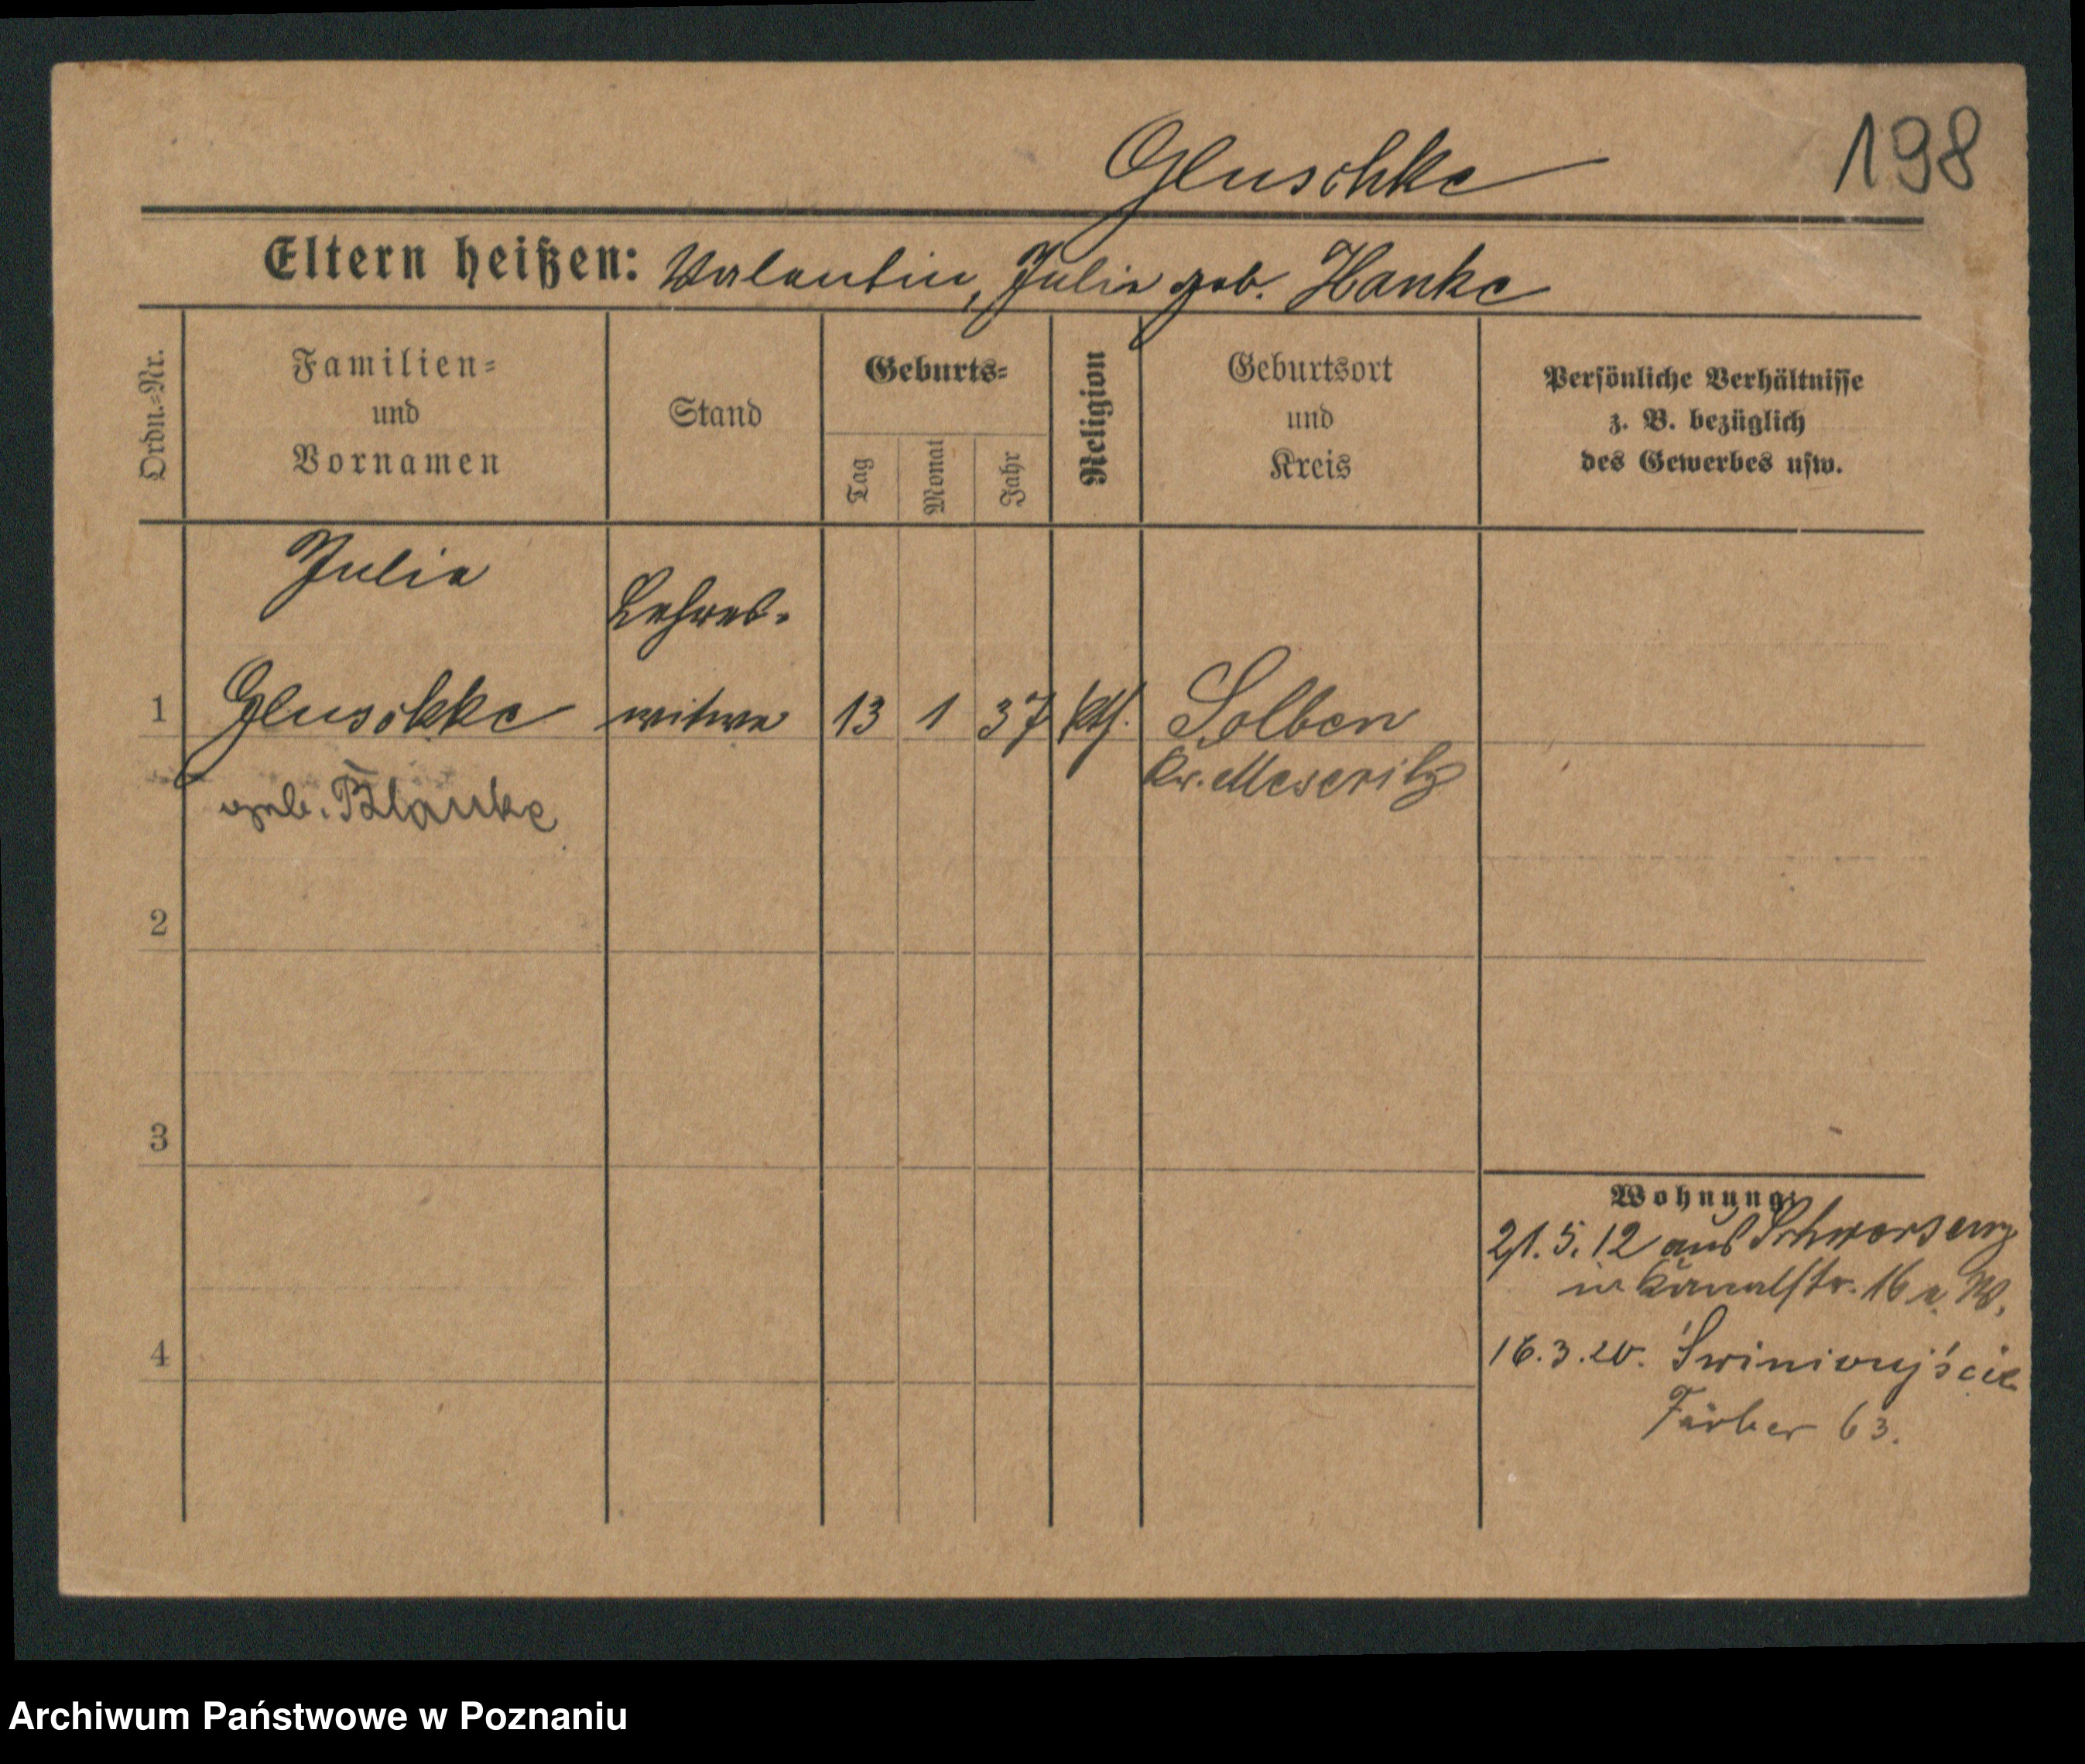 198
Gluschke
Eltern heißen: Valentin, Julia geb. Hanke
Ordn.=Nr.
Familien=
und
Vornamen
Stand
Geburts=
Tag
Monat
Jahr
Religion
Geburtsort
und
Kreis
Persönliche Verhältnisse
z. B. bezüglich
des Gewerbes usw.
Julia
Lehrer-
1 Gluschke witwe 13 1 37 kth. Solben
Kr. Meseritz
geb. Blanke
2
3
Wohnung:
21.5.12 aus Schwersenz
in Kanalstr. 16 a. W.
4
16.3.20. Świnioujście
Färber 63.
Archiwum Państwowe w Poznaniu